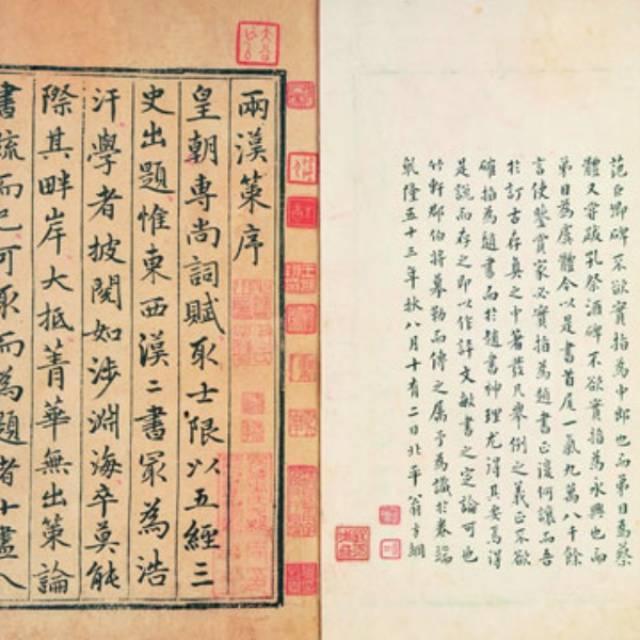 范巨卿碑不欲實指為中郎也而第目為蔡
體又嘗跋孔祭酒碑不欲實指為永興也而
第目為虞體今以是書首尾一氣九萬八千餘
言使鑒賞家必實指為趙書正復何讓而吾
於訂古存真之中著發凡舉例之義正不欲
確指為趙書而於趙書神理尤得其妥焉得
是說而存之即以作評文敏書之定論可也
竹軒郡伯將摹勒而傳之屬予為識於卷端
乾隆五十三年秋八月十有二日北平翁方綱
兩漢策序
皇朝專尚詞賦取士限以五經三
史出題惟東西漢二書冣為浩
汗學者披閱如涉淵海卒莫能
際其畔岸大抵菁華無出策論
書疏而已可取而為題者十盡八